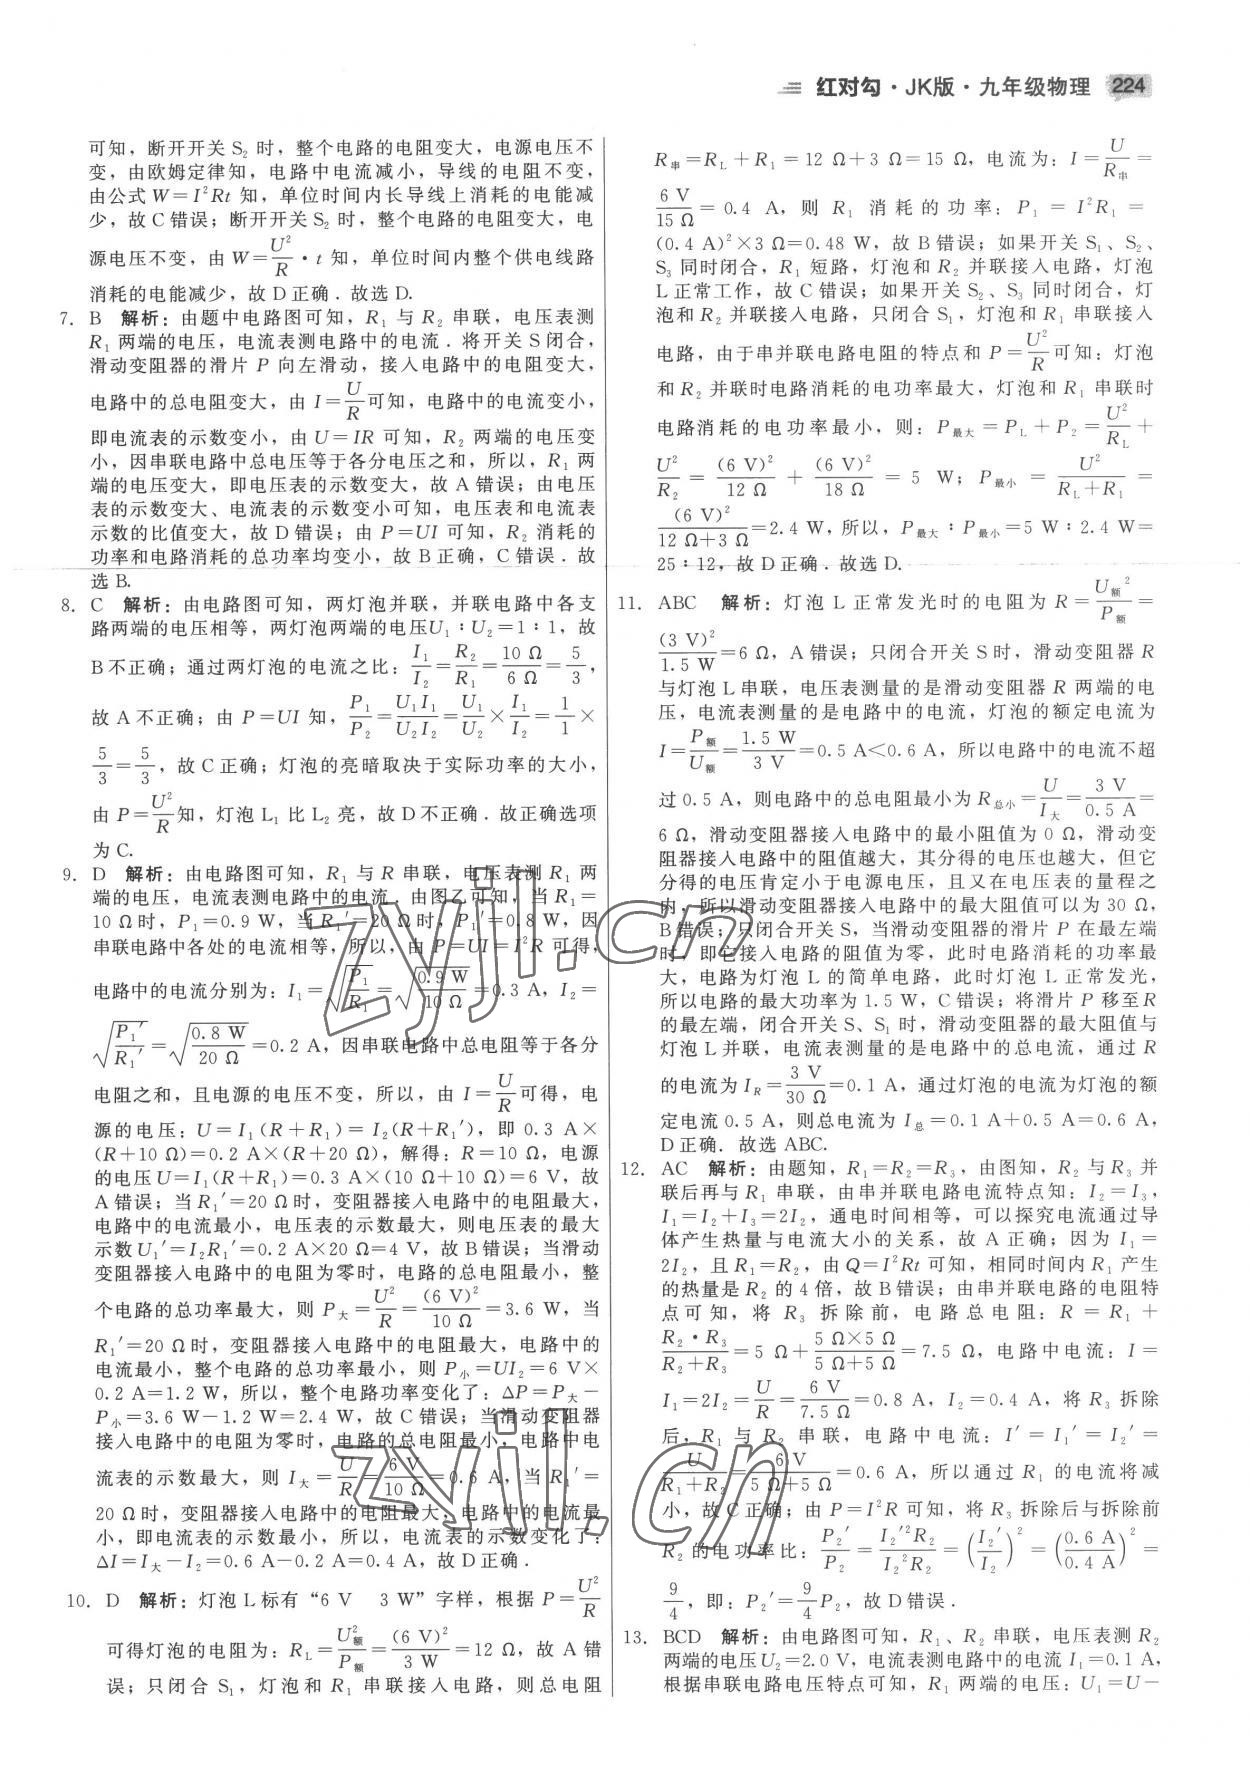 红对勾·JK版·九年级物理 224
可知,断开开关 S₂ 时,整个电路的电阻变大,电源电压不
变,由欧姆定律知,电路中电流减小,导线的电阻不变,
由公式 W=I²Rt 知,单位时间内长导线上消耗的电能减
少,故 C 错误;断开开关 S₂ 时,整个电路的电阻变大,电
源电压不变,由 W=U²/R·t 知,单位时间内整个供电线路
消耗的电能减少,故 D 正确.故选 D.
7. B 解析:由题中电路图可知,R₁ 与 R₂ 串联,电压表测
R₁ 两端的电压,电流表测电路中的电流.将开关 S 闭合,
滑动变阻器的滑片 P 向左滑动,接入电路中的电阻变大,
电路中的总电阻变大,由 I=U/R可知,电路中的电流变小,
即电流表的示数变小,由 U=IR 可知,R₂ 两端的电压变
小,因串联电路中总电压等于各分电压之和,所以,R₁ 两
端的电压变大,即电压表的示数变大,故 A 错误;由电压
表的示数变大、电流表的示数变小可知,电压表和电流表
示数的比值变大,故 D 错误;由 P=UI 可知,R₂ 消耗的
功率和电路消耗的总功率均变小,故 B 正确,C 错误.故
选 B.
8. C 解析:由电路图可知,两灯泡并联,并联电路中各支
路两端的电压相等,两灯泡两端的电压U₁∶U₂=1∶1,故
B 不正确;通过两灯泡的电流之比:I₁/I₂=R₂/R₁=10 Ω/6 Ω=5/3,
故 A 不正确;由 P=UI 知,P₁/P₂=U₁I₁/U₂I₂=U₁/U₂×I₁/I₂=1/1×
5/3=5/3,故 C 正确;灯泡的亮暗取决于实际功率的大小,
由 P=U²/R知,灯泡 L₁ 比 L₂ 亮,故 D 不正确.故正确选项
为 C.
9. D 解析:由电路图可知,R₁ 与 R 串联,电压表测 R₁ 两
端的电压,电流表测电路中的电流.由图乙可知,当 R₁=
10 Ω 时,P₁=0.9 W,当 R₁′=20 Ω 时,P₁′=0.8 W,因
串联电路中各处的电流相等,所以,由 P=UI=I²R 可得,
电路中的电流分别为:I₁=√(P₁/R₁)=√(0.9 W/10 Ω)=0.3 A,I₂=
√(P₁′/R₁′)=√(0.8 W/20 Ω)=0.2 A,因串联电路中总电阻等于各分
电阻之和,且电源的电压不变,所以,由 I=U/R可得,电
源的电压:U=I₁(R+R₁)=I₂(R+R₁′),即 0.3 A×
(R+10 Ω)=0.2 A×(R+20 Ω),解得:R=10 Ω,电源
的电压 U=I₁(R+R₁)=0.3 A×(10 Ω+10 Ω)=6 V,故
A 错误;当 R₁′=20 Ω 时,变阻器接入电路中的电阻最大,
电路中的电流最小,电压表的示数最大,则电压表的最大
示数 U₁′=I₂R₁′=0.2 A×20 Ω=4 V,故 B 错误;当滑动
变阻器接入电路中的电阻为零时,电路的总电阻最小,整
个电路的总功率最大,则 P大=U²/R=(6 V)²/10 Ω=3.6 W,当
R₁′=20 Ω 时,变阻器接入电路中的电阻最大,电路中的
电流最小,整个电路的总功率最小,则 P小=UI₂=6 V×
0.2 A=1.2 W,所以,整个电路功率变化了:ΔP=P大−
P小=3.6 W−1.2 W=2.4 W,故 C 错误;当滑动变阻器
接入电路中的电阻为零时,电路的总电阻最小,电路中电
流表的示数最大,则 I大=U/R=6 V/10 Ω=0.6 A,当 R₁′=
20 Ω 时,变阻器接入电路中的电阻最大,电路中的电流最
小,即电流表的示数最小,所以,电流表的示数变化了:
ΔI=I大−I₂=0.6 A−0.2 A=0.4 A,故 D 正确.
10. D 解析:灯泡 L 标有“6 V 3 W”字样,根据 P=U²/R
可得灯泡的电阻为:R_L=U额²/P额=(6 V)²/3 W=12 Ω,故 A 错
误;只闭合 S₁,灯泡和 R₁ 串联接入电路,则总电阻
R串=R_L+R₁=12 Ω+3 Ω=15 Ω,电流为:I=U/R串=
6 V/15 Ω=0.4 A,则 R₁ 消耗的功率:P₁=I²R₁=
(0.4 A)²×3 Ω=0.48 W,故 B 错误;如果开关 S₁、S₂、
S₃ 同时闭合,R₁ 短路,灯泡和 R₂ 并联接入电路,灯泡
L 正常工作,故 C 错误;如果开关 S₂、S₃ 同时闭合,灯
泡和 R₂ 并联接入电路,只闭合 S₁,灯泡和 R₁ 串联接入
电路,由于串并联电路电阻的特点和 P=U²/R可知:灯泡
和 R₂ 并联时电路消耗的电功率最大,灯泡和 R₁ 串联时
电路消耗的电功率最小,则:P最大=P_L+P₂=U²/R_L+
U²/R₂=(6 V)²/12 Ω+(6 V)²/18 Ω=5 W;P最小=U²/(R_L+R₁)=
(6 V)²/(12 Ω+3 Ω)=2.4 W,所以,P最大∶P最小=5 W∶2.4 W=
25∶12,故 D 正确.故选 D.
11. ABC 解析:灯泡 L 正常发光时的电阻为 R=U额²/P额=
(3 V)²/1.5 W=6 Ω,A 错误;只闭合开关 S 时,滑动变阻器 R
与灯泡 L 串联,电压表测量的是滑动变阻器 R 两端的电
压,电流表测量的是电路中的电流,灯泡的额定电流为
I=P额/U额=1.5 W/3 V=0.5 A<0.6 A,所以电路中的电流不超
过 0.5 A,则电路中的总电阻最小为 R总小=U/I大=3 V/0.5 A=
6 Ω,滑动变阻器接入电路中的最小阻值为 0 Ω,滑动变
阻器接入电路中的阻值越大,其分得的电压也越大,但它
分得的电压肯定小于电源电压,且又在电压表的量程之
内,所以滑动变阻器接入电路中的最大阻值可以为 30 Ω,
B 错误;只闭合开关 S,当滑动变阻器的滑片 P 在最左端
时,即它接入电路的阻值为零,此时电路消耗的功率最
大,电路为灯泡 L 的简单电路,此时灯泡 L 正常发光,
所以电路的最大功率为 1.5 W,C 错误;将滑片 P 移至 R
的最左端,闭合开关 S、S₁ 时,滑动变阻器的最大阻值与
灯泡 L 并联,电流表测量的是电路中的总电流,通过 R
的电流为 I_R=3 V/30 Ω=0.1 A,通过灯泡的电流为灯泡的额
定电流 0.5 A,则总电流为 I总=0.1 A+0.5 A=0.6 A,
D 正确.故选 ABC.
12. AC 解析:由题知,R₁=R₂=R₃,由图知,R₂ 与 R₃ 并
联后再与 R₁ 串联,由串并联电路电流特点知:I₂=I₃,
I₁=I₂+I₃=2I₂,通电时间相等,可以探究电流通过导
体产生热量与电流大小的关系,故 A 正确;因为 I₁=
2I₂,且 R₁=R₂,由 Q=I²Rt 可知,相同时间内 R₁ 产生
的热量是 R₂ 的 4 倍,故 B 错误;由串并联电路的电阻特
点可知,将 R₃ 拆除前,电路总电阻:R=R₁+
R₂·R₃/(R₂+R₃)=5 Ω+5 Ω×5 Ω/(5 Ω+5 Ω)=7.5 Ω,电路中电流:I=
I₁=2I₂=U/R=6 V/7.5 Ω=0.8 A,I₂=0.4 A,将 R₃ 拆除
后,R₁ 与 R₂ 串联,电路中电流:I′=I₁′=I₂′=
U/(R₁+R₂)=6 V/(5 Ω+5 Ω)=0.6 A,所以通过 R₁ 的电流将减
小,故 C 正确;由 P=I²R 可知,将 R₃ 拆除后与拆除前
R₂ 的电功率比:P₂′/P₂=I₂′²R₂/I₂²R₂=(I₂′/I₂)²=(0.6 A/0.4 A)²=
9/4,即:P₂′=9/4P₂,故 D 错误.
13. BCD 解析:由电路图可知,R₁、R₂ 串联,电压表测 R₂
两端的电压 U₂=2.0 V,电流表测电路中的电流 I₁=0.1 A,
根据串联电路电压特点可知,R₁ 两端的电压:U₁=U−
zyjl.cn
zyjl.cn